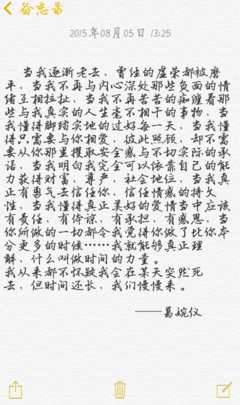 备忘录
2015年08月05日 13:25
当我逐渐老去，曾经的虚荣都被磨
平，当我不再与内心深处那些负面的情
绪互相拉扯，当我不再苦苦的痴缠着那
些与我真实的人生毫不相干的事物，当
我懂得脚踏实地的过好每一天，当我懂
得只需要与你相爱，彼此照顾，却不需
要从你那里攫取安全感与不切实际的承
诺，当我明白我完全可以依靠自己的能
力获得财富、尊严，社会地位，当我真
正有勇气去信任你，信任情感的持久
性，当我懂得真正美好的爱情当中应该
有责任，有体谅，有承担，有感恩，当
你所做的一切都令我觉得你做了比你本
分更多的时候……我就能够真正理
解，什么叫做时间的力量。
我从来都不怀疑我会在某天突然死
去，但时间还长，我们慢慢来。
——葛婉仪